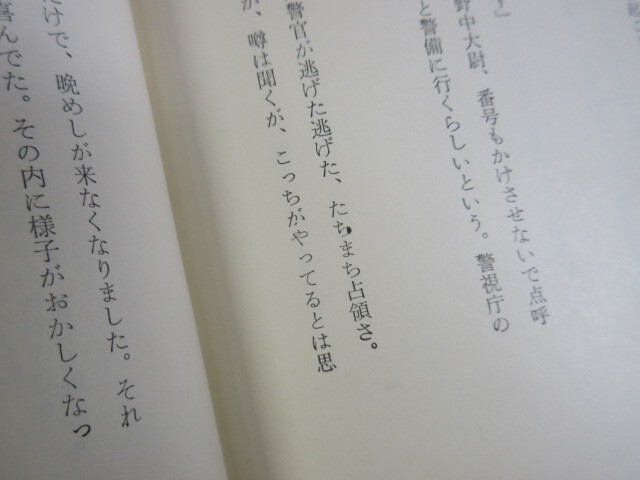 野中大尉、番号もかけさせないで点呼
と警備に行くらしいという。警視庁の
警官が逃げた逃げた、たちまち占領さ。
が、噂は聞くが、こっちがやってるとは思
だけで、晩めしが来なくなりました。それ
喜んでた。その内に様子がおかしくなっ